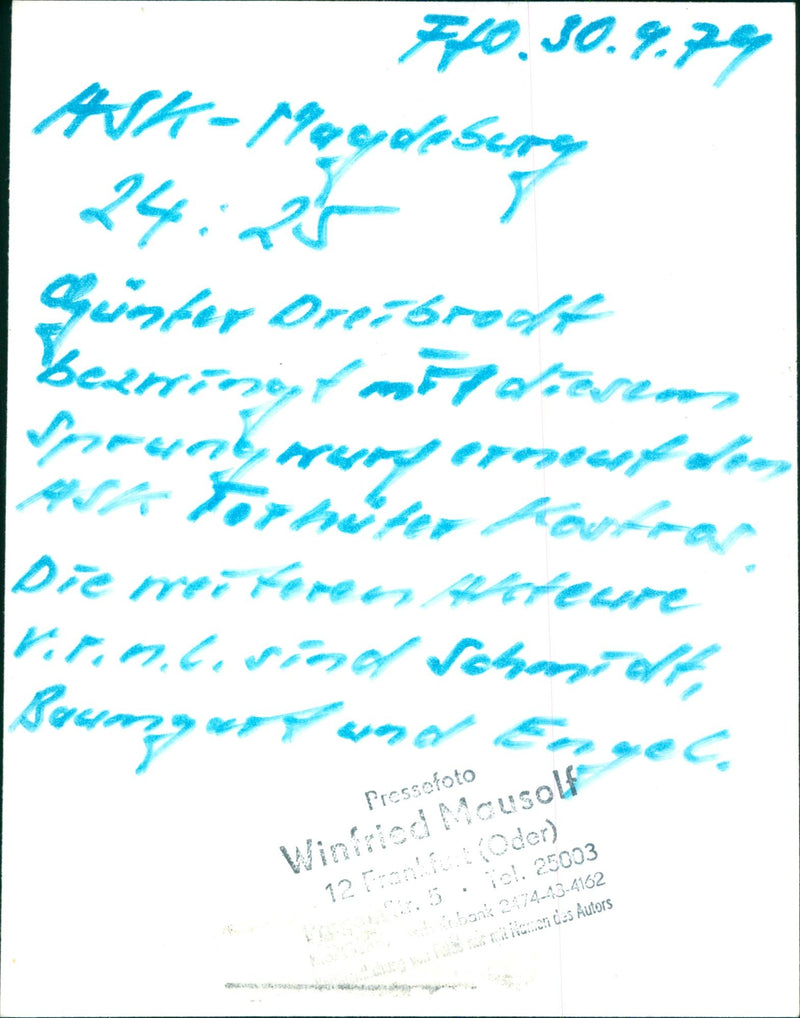 Ffo. 30.9.79
ASK - Magdeburg
24 : 25
Günter Dreibrodt
bezwingt mit diesem
Sprungwurf erneut den
ASK Torhüter Kostros.
Die weiteren Akteure
v.r.n.l. sind Schmidt,
Baumgart und Engel.
Pressefoto
Winfried Mausolf
12 Frankfurt (Oder)
Str. 5 · Tel. 25003
2474-43-4162
nur mit Namen des Autors